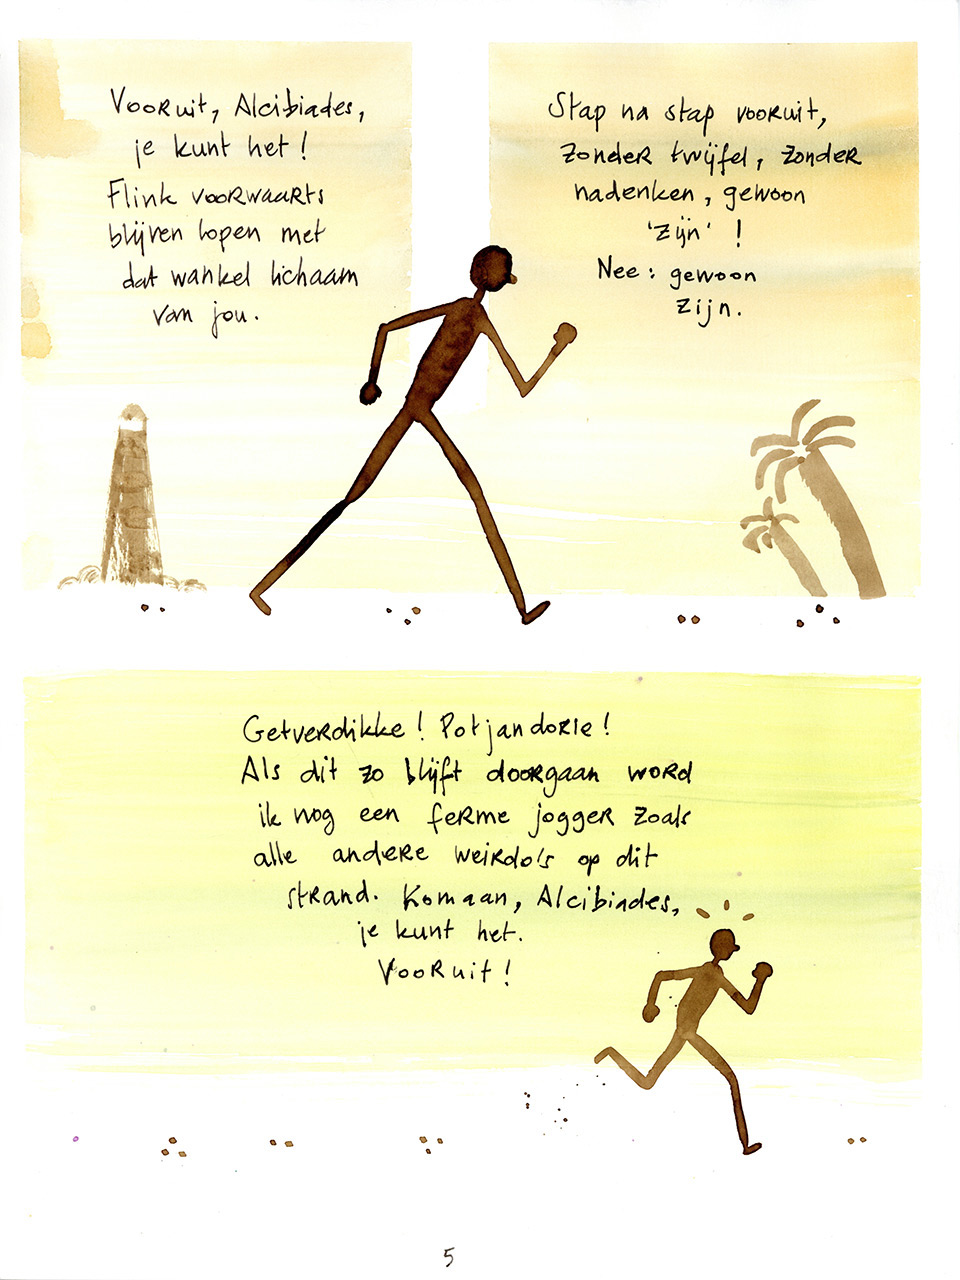 Vooruit, Alcibiades,
je kunt het!
Flink voorwaarts
blijven lopen met
dat wankel lichaam
van jou.
Stap na stap vooruit,
zonder twijfel, zonder
nadenken, gewoon
'zijn' !
Nee: gewoon
zijn.
Getverdikke! Potjandorie!
Als dit zo blijft doorgaan word
ik nog een ferme jogger zoals
alle andere weirdo's op dit
strand. Komaan, Alcibiades,
je kunt het.
Vooruit!
5